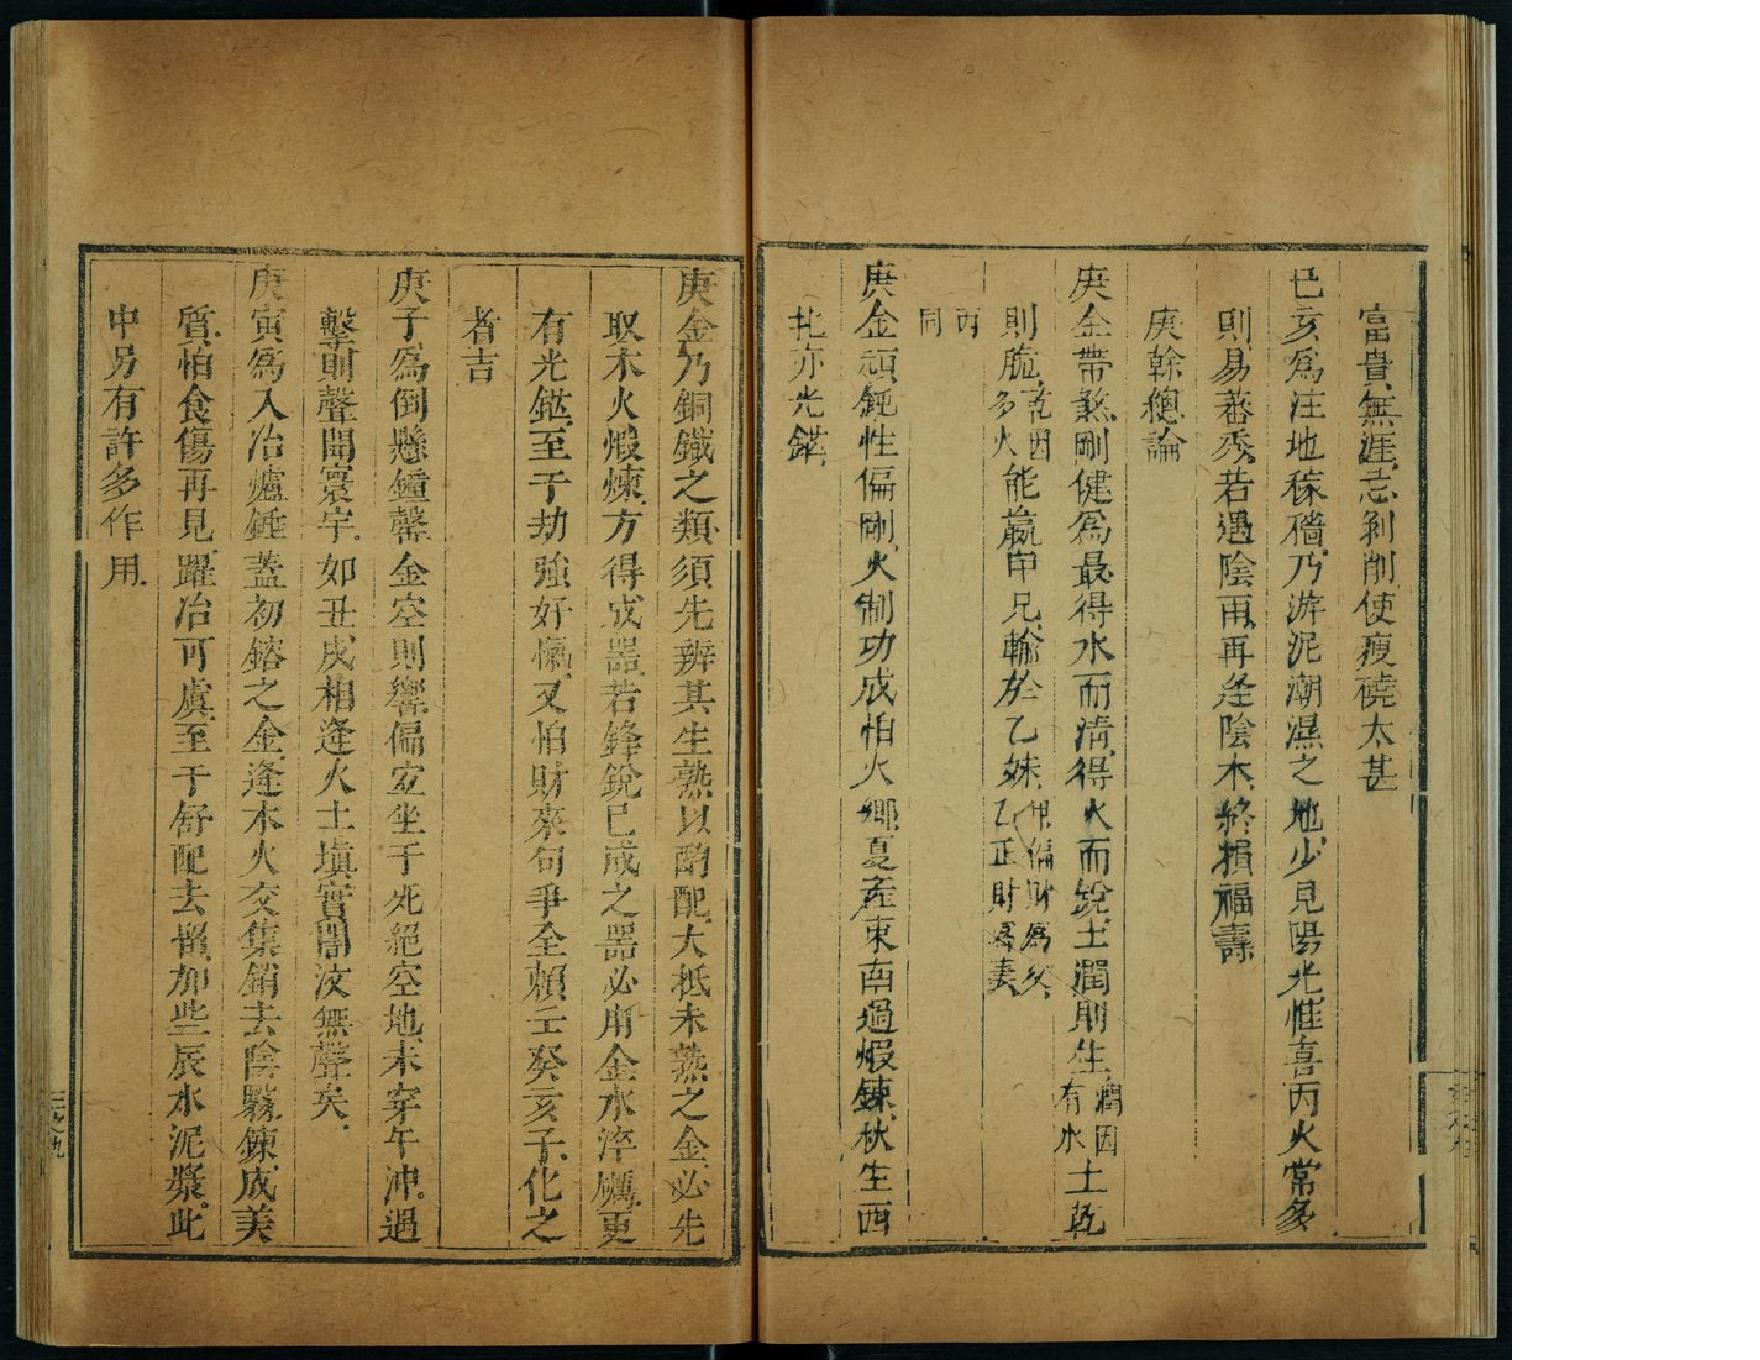 富貴無涯忌剝削使瘦磽太甚
已亥爲注地稼穡乃游泥潮濕之地少見陽光惟喜丙火常多
則易蕃秀若遇陰雨再逢陰木終損福壽
庚幹總論
庚金帶煞剛健爲最得水而清得火而銳土潤則生潤因有水土乾
則脆乾因多火能贏甲兄輸於乙妹甲偏財爲父乙正財爲妻
丙同
庚金頑鈍性偏剛火制功成怕火鄉夏産東南過煅鍊秋生西
北亦光鋩
庚金乃銅鐵之類須先辨其生熟以酌配大柢未熟之金必先
取木火煅煉方得成器若鋒銳已成之器必用金水淬礪更
有光鋩至于劫強好傷又怕財來句爭全賴壬癸亥子化之
者吉
庚子爲倒懸鐘磬金空則響偏宜坐于死絕空地未穿午沖過
擊則聲聞寰宇如丑戌相逢火土塡實闇汶無聲矣
庚寅爲入冶爐錘蓋初鎔之金逢木火交集銷去陰翳鍊成美
質怕食傷再見躍冶可虞至于舒配去留加些辰水泥漿此
中另有許多作用
三之九